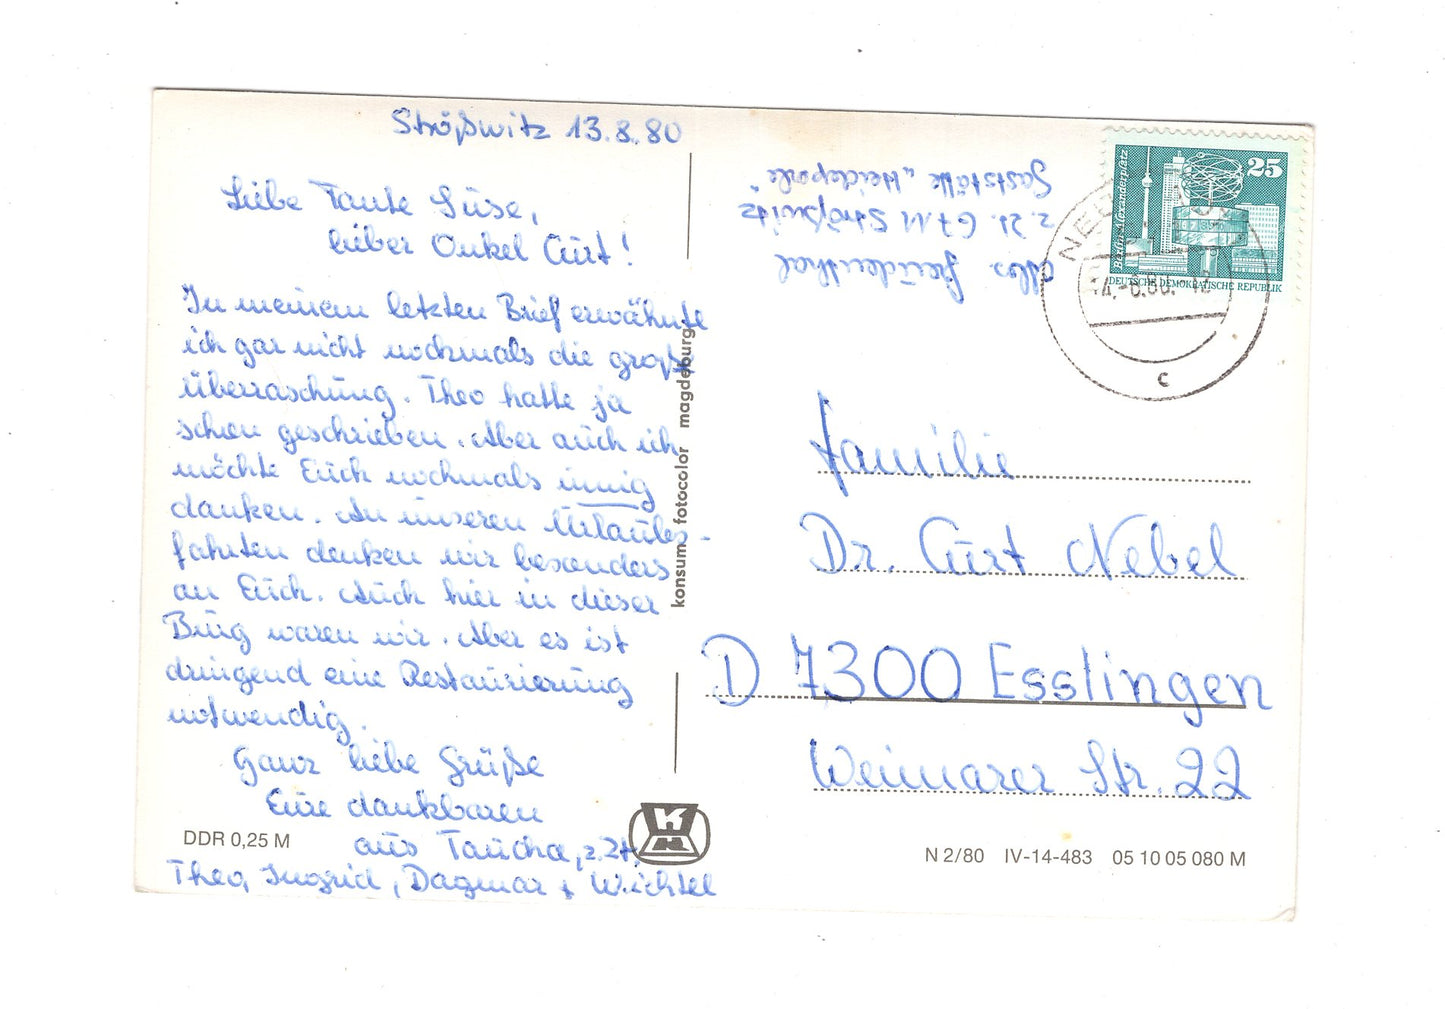 Strößwitz 13.8.80
Liebe Tante Suse,
lieber Onkel Curt!
In meinem letzten Brief erwähnte
ich gar nicht nochmals die große
Überraschung. Theo hatte ja
schon geschrieben. Aber auch ich
möchte Euch nochmals innig
danken. An unseren Urlaubs-
fahrten denken wir besonders
an Euch. Auch hier in dieser
Burg waren wir. Aber es ist
dringend eine Restaurierung
notwendig.
Ganz liebe Grüße
Eure dankbaren
aus Taucha, z.Zt.
Theo, Ingrid, Dagmar + Wichtel
DDR 0,25 M
konsum fotocolor magdeburg
Abs.
z. Zt. Strößwitz
Gaststätte "Heideperle"
25
Berlin, Alexanderplatz
DEUTSCHE DEMOKRATISCHE REPUBLIK
c
Familie
Dr. Curt Nebel
D 7300 Esslingen
Weimarer Str. 22
N 2/80 IV-14-483 05 10 05 080 M